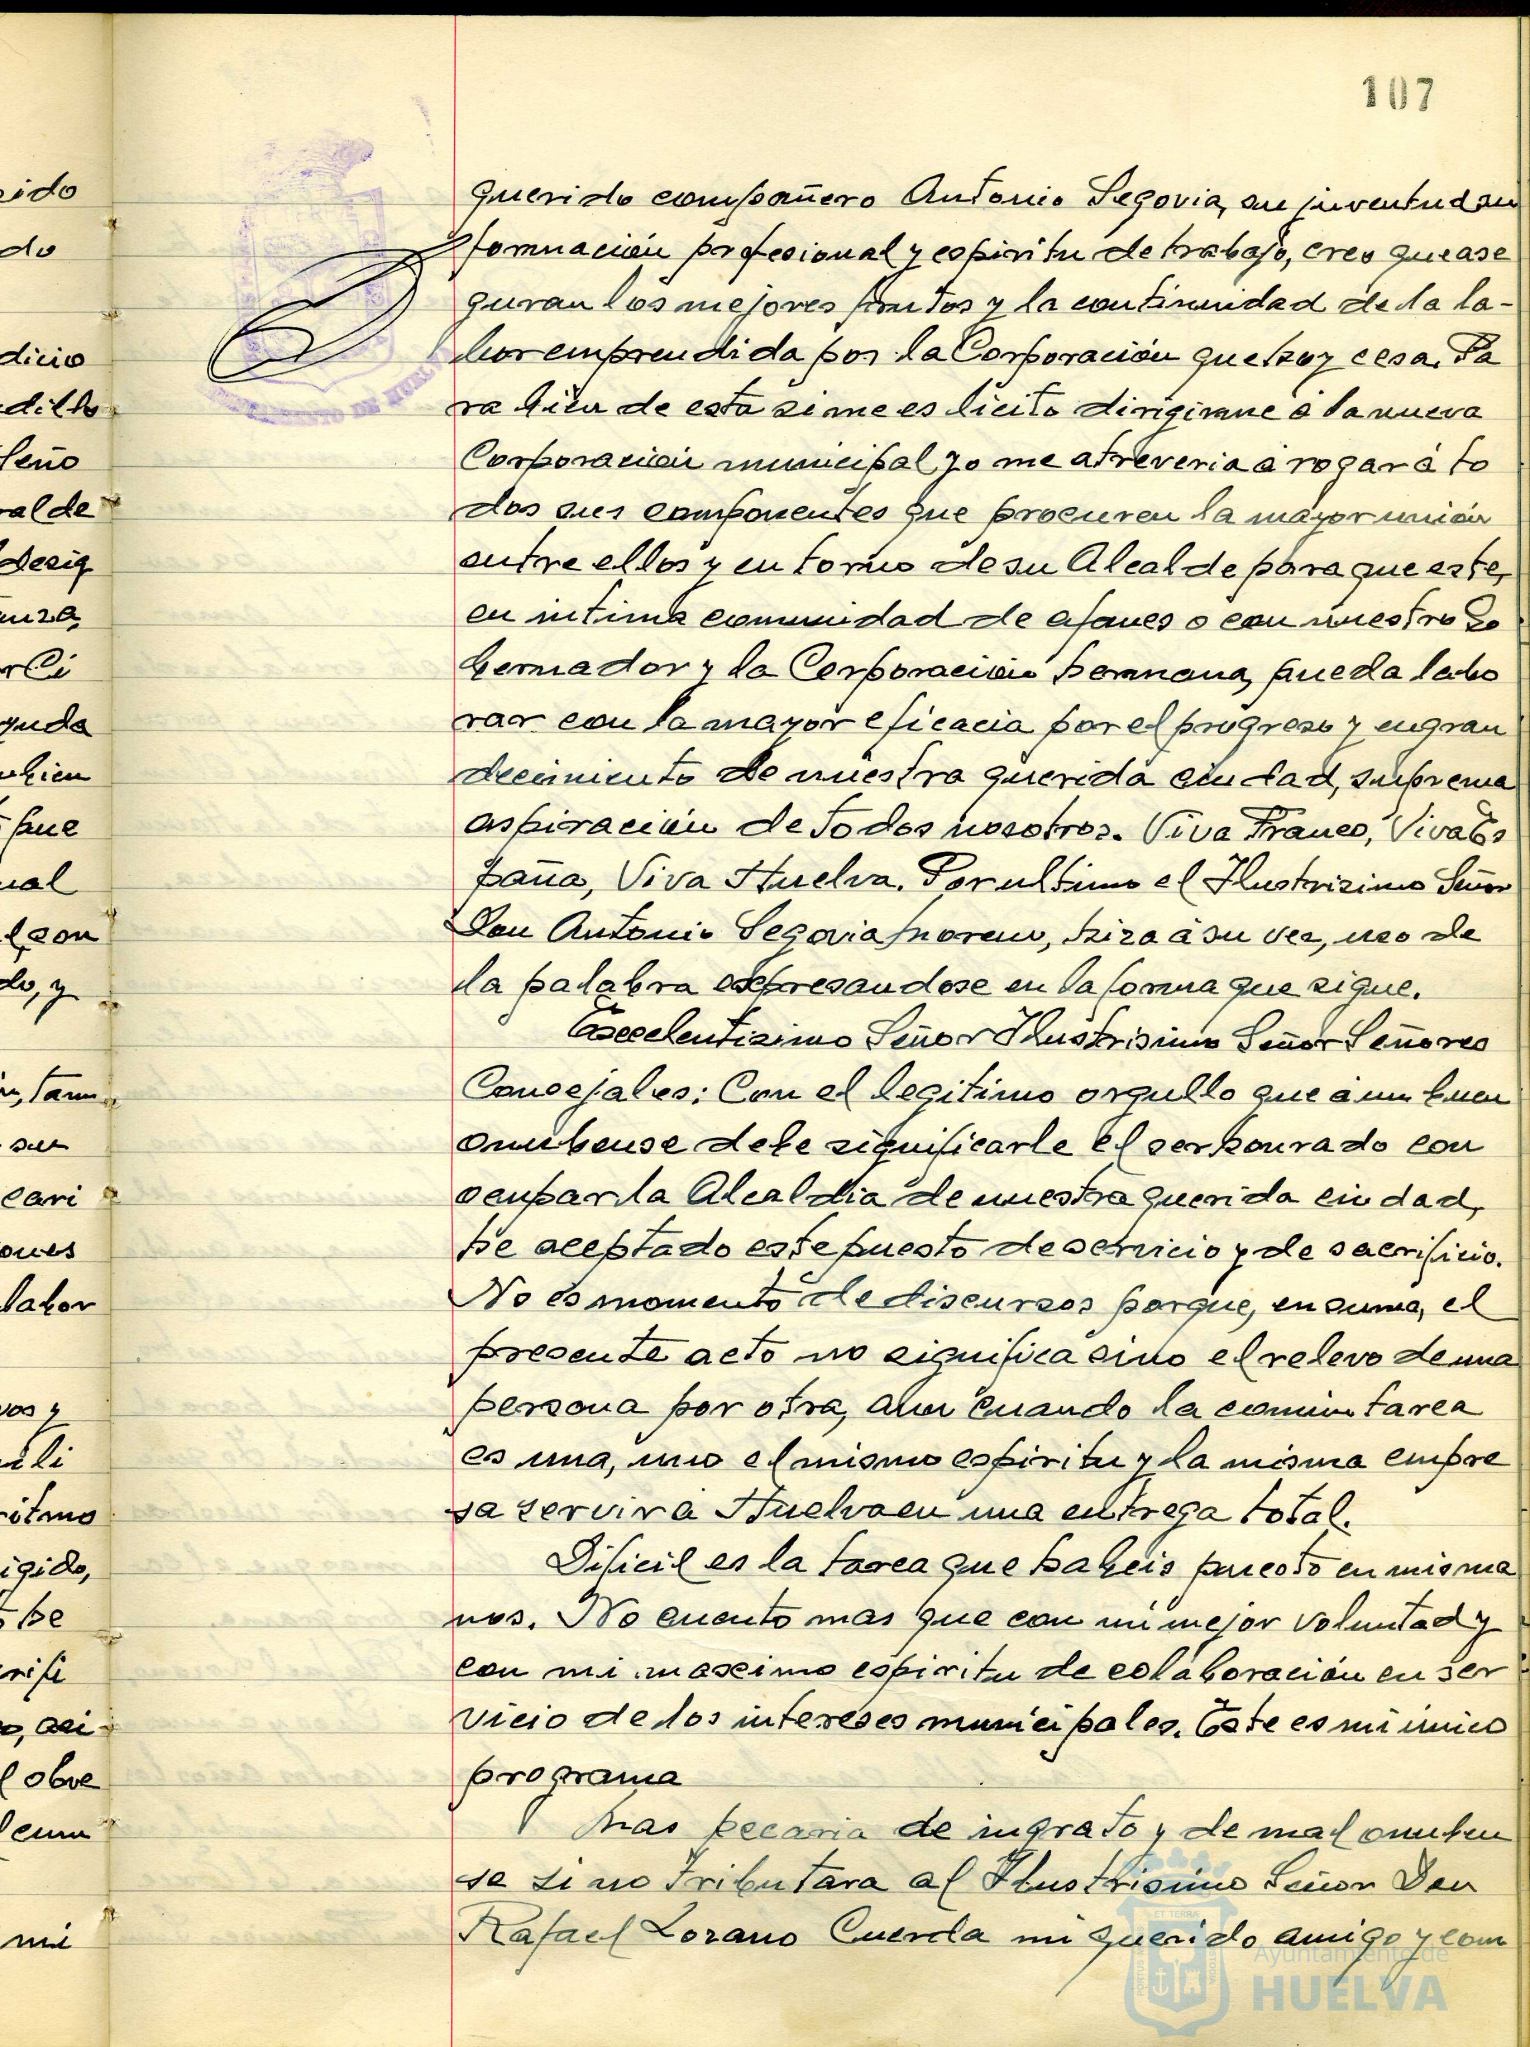 107
querido compañero Antonio Segovia, su juventud su
formación profesional y espiritu de trabajo, creo que ase
guran los mejores frutos y la continuidad de la la-
bor emprendida por la Corporación que hoy cesa. Pa
ra bien de esta si me es licito dirigirme á la nueva
Corporación municipal yo me atreveria á rogar á to
dos sus componentes que procuren la mayor unión
entre ellos y en torno de su Alcalde para que este,
en intima comunidad de afanes o con nuestro Go
bernador y la Corporación hermana, pueda labo
rar con la mayor eficacia por el progreso y engran
decimiento de nuestra querida ciudad, suprema
aspiración de todos nosotros. Viva Franco, Viva Es
paña, Viva Huelva. Por ultimo el Ilustrisimo Señor
Don Antonio Segovia Moreno, hizo á su vez, uso de
la palabra expresandose en la forma que sigue.
Excelentisimo Señor Ilustrisimo Señor Señores
Concejales: Con el legitimo orgullo que á un buen
onubense debe significarle el ser honrado con
ocupar la Alcaldia de nuestra querida ciudad,
he aceptado este puesto de servicio y de sacrificio.
No es momento de discursos porque, en suma, el
presente acto no significa sino el relevo de una
persona por otra, aun cuando la comun tarea
es una, uno el mismo espiritu y la misma empre
sa servir á Huelva en una entrega total.
Dificil es la tarea que habeis puesto en mis ma
nos. No cuento mas que con mi mejor voluntad y
con mi maximo espiritu de colaboración en ser
vicio de los intereses municipales. Este es mi unico
programa
Mas pecaria de ingrato y de mal onuben
se si no tributara al Ilustrisimo Señor Don
Rafael Lozano Cuerda mi querido amigo y com
Ayuntamiento de
HUELVA
AYUNTAMIENTO DE HUELVA
ido
do
dicio
dillo
Seño
ral de
desig
anza,
or Ci
yuda
bien
pue
ual
l con
do, y
n, tam
su
cari
ones
labor
vos y
ili
ritmo
igido,
he
rifi
o, asi
l obve
cum
mi